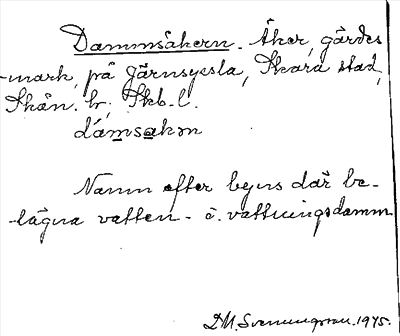 Dammsåkern. Åker, gärdes
-mark, på Järnsyssla, Skara stad,
Skån. hr, Skb. l.
dámsakɔn
Namn efter byns där be-
lägna vatten- o. vattningsdamm
D. M. Svenungsson. 1975.